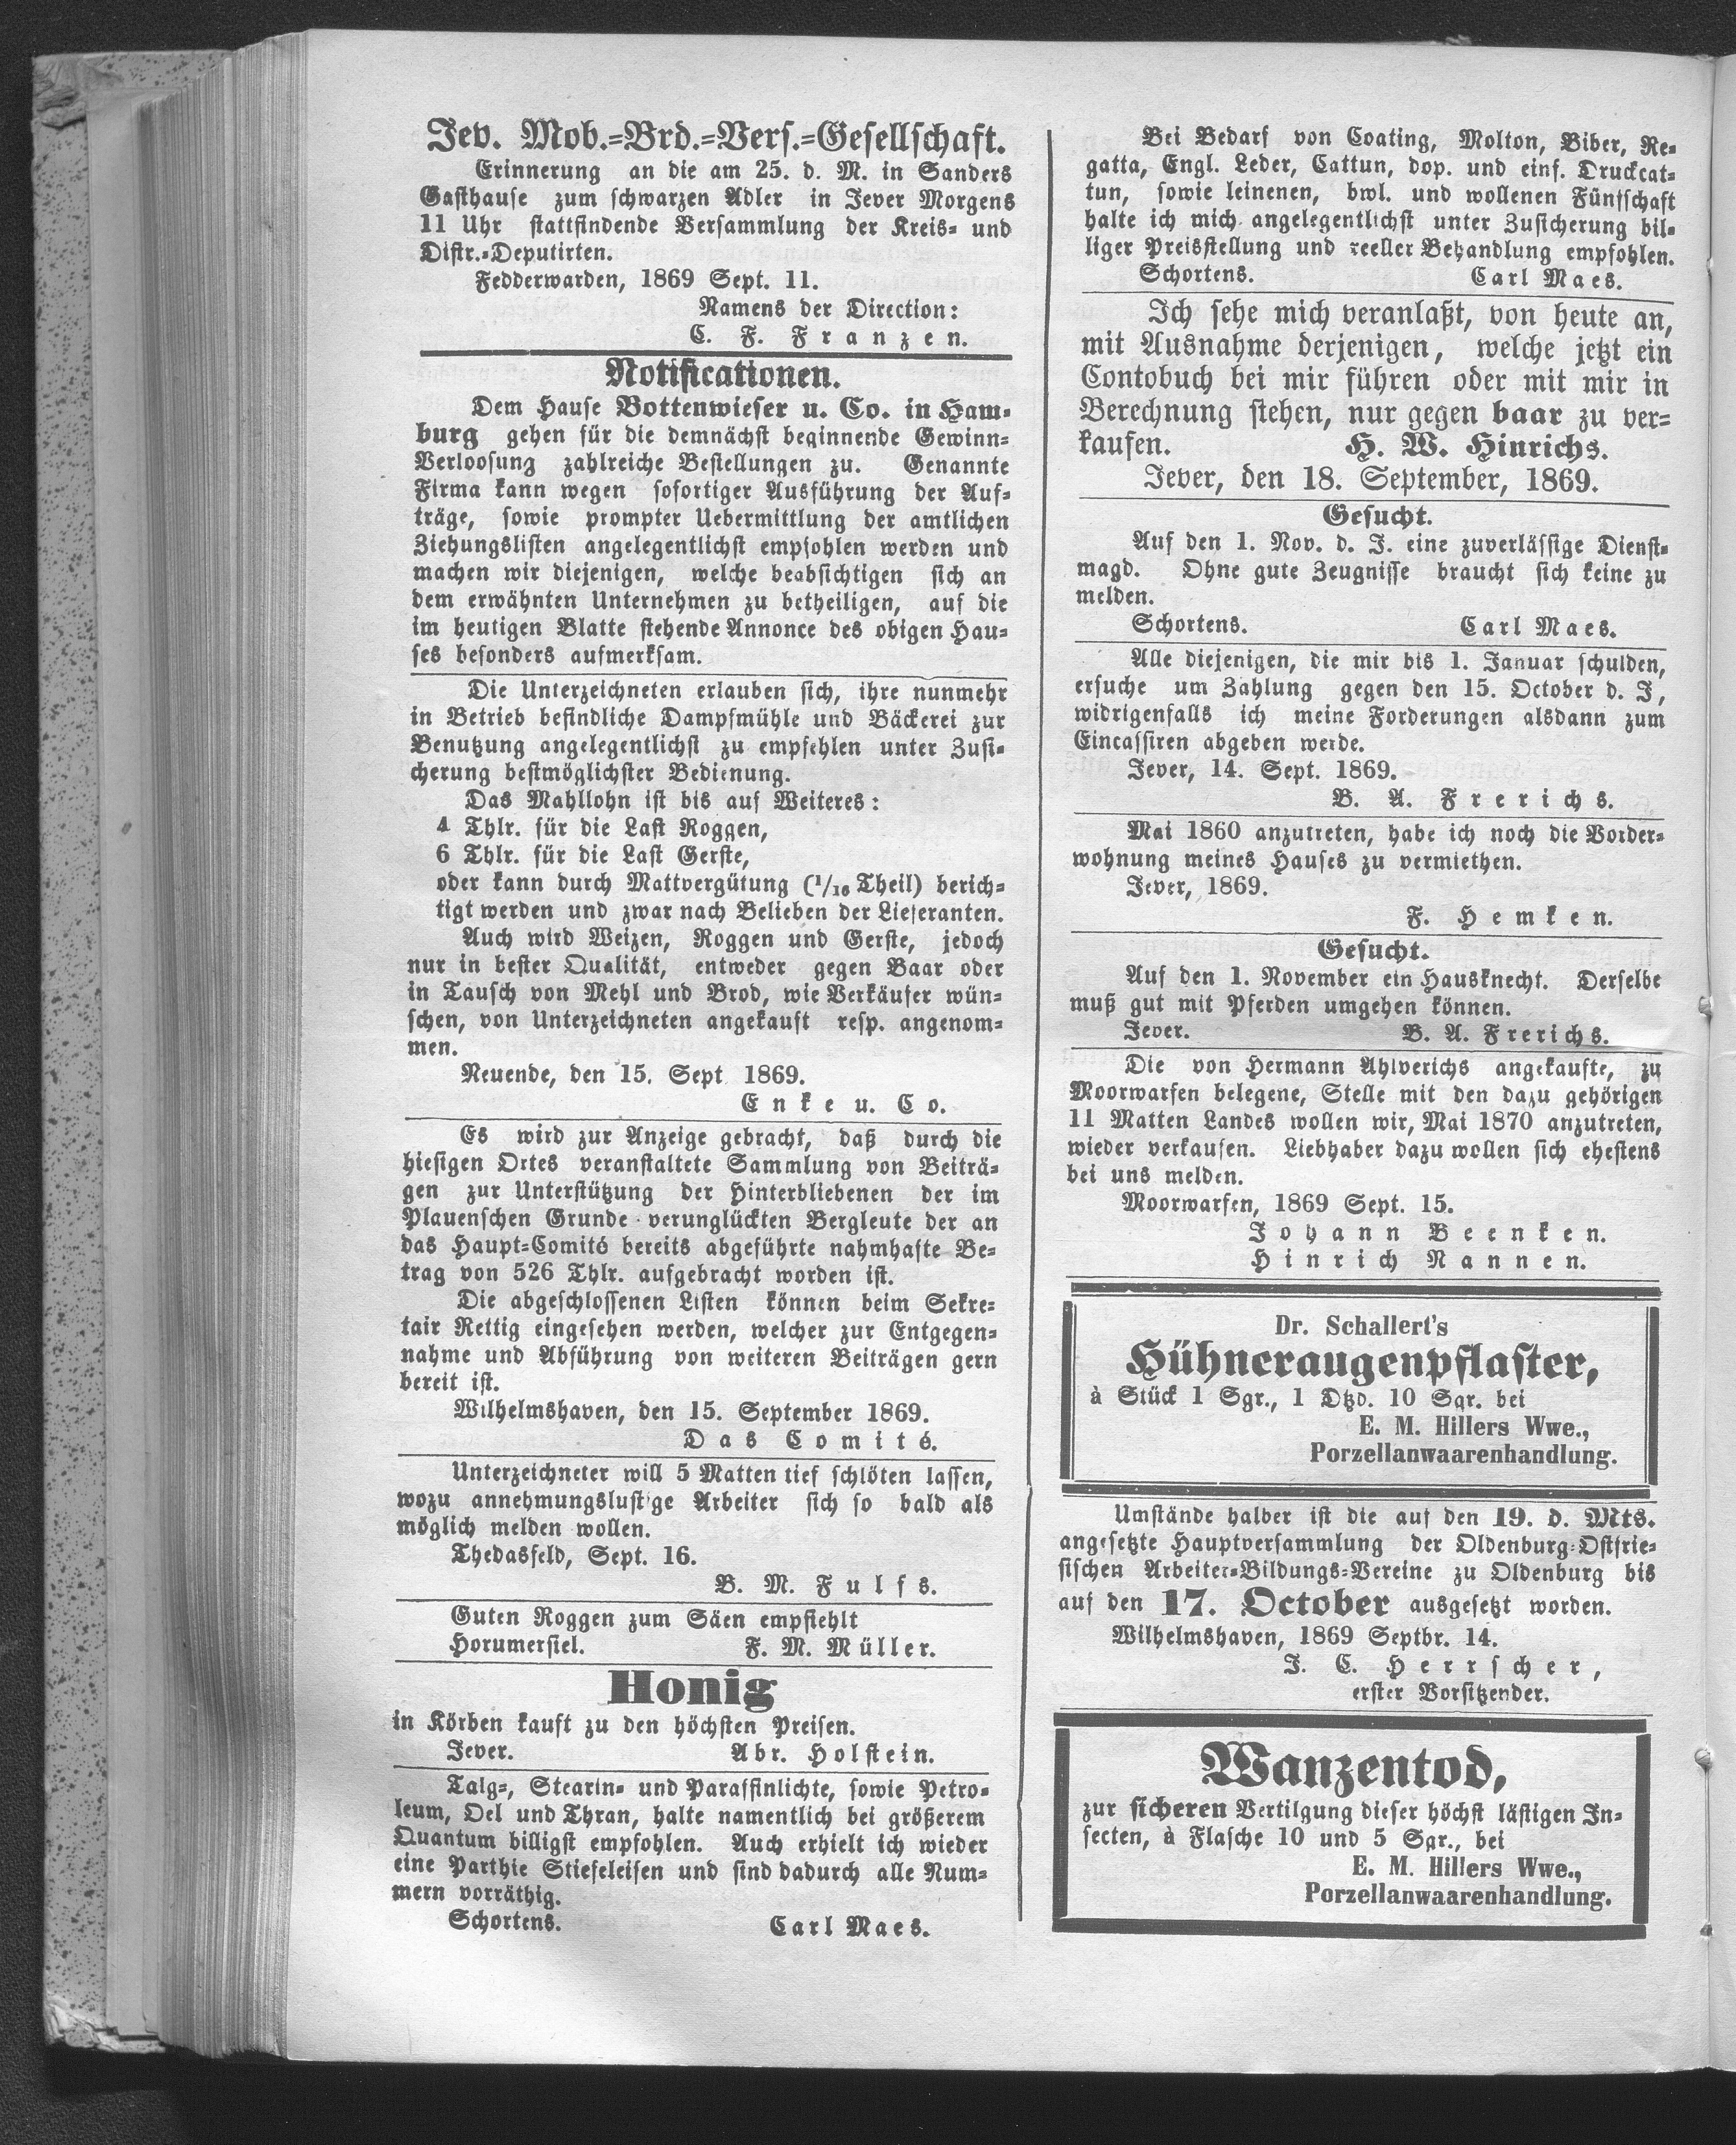 Jev. Mob.=Brd.=Vers.=Gesellschaft.
Erinnerung an die am 25. d. M. in Sanders
Gasthause zum schwarzen Adler in Jever Morgens
11 Uhr stattfindende Versammlung der Kreis= und
Distr.=Deputirten.
Fedderwarden, 1869 Sept. 11.
Namens der Direction:
C. F. Franzen.
Notificationen.
Dem Hause Bottenwieser u. Co. in Ham=
burg gehen für die demnächst beginnende Gewinn=
Verloosung zahlreiche Bestellungen zu. Genannte
Firma kann wegen sofortiger Ausführung der Auf=
träge, sowie prompter Uebermittlung der amtlichen
Ziehungslisten angelegentlichst empfohlen werden und
machen wir diejenigen, welche beabsichtigen sich an
dem erwähnten Unternehmen zu betheiligen, auf die
im heutigen Blatte stehende Annonce des obigen Hau=
ses besonders aufmerksam.
Die Unterzeichneten erlauben sich, ihre nunmehr
in Betrieb befindliche Dampfmühle und Bäckerei zur
Benutzung angelegentlichst zu empfehlen unter Zusi=
cherung bestmöglichster Bedienung.
Das Mahllohn ist bis auf Weiteres:
4 Thlr. für die Last Roggen,
6 Thlr. für die Last Gerste,
oder kann durch Mattvergütung (1/16 Theil) berich=
tigt werden und zwar nach Belieben der Lieferanten.
Auch wird Weizen, Roggen und Gerste, jedoch
nur in bester Qualität, entweder gegen Baar oder
in Tausch von Mehl und Brod, wie Verkäufer wün=
schen, von Unterzeichneten angekauft resp. angenom=
men.
Neuende, den 15. Sept 1869.
Enke u. Co.
Es wird zur Anzeige gebracht, daß durch die
hiesigen Ortes veranstaltete Sammlung von Beiträ=
gen zur Unterstützung der Hinterbliebenen der im
Plauenschen Grunde verunglückten Bergleute der an
das Haupt=Comité bereits abgeführte nahmhafte Be=
trag von 526 Thlr. aufgebracht worden ist.
Die abgeschlossenen Listen können beim Sekre=
tair Rettig eingesehen werden, welcher zur Entgegen=
nahme und Abführung von weiteren Beiträgen gern
bereit ist.
Wilhelmshaven, den 15. September 1869.
Das Comité.
Unterzeichneter will 5 Matten tief schlöten lassen,
wozu annehmungslustige Arbeiter sich so bald als
möglich melden wollen.
Thedasfeld, Sept. 16.
B. M. Fulfs.
Guten Roggen zum Säen empfiehlt
Horumersiel. F. M. Müller.
Honig
in Körben kauft zu den höchsten Preisen.
Jever. Abr. Holstein.
Talg=, Stearin= und Paraffinlichte, sowie Petro=
leum, Oel und Thran, halte namentlich bei größerem
Quantum billigst empfohlen. Auch erhielt ich wieder
eine Parthie Stiefeleisen und sind dadurch alle Num=
mern vorräthig.
Schortens. Carl Maes.
Bei Bedarf von Coating, Molton, Biber, Re=
gatta, Engl. Leder, Cattun, dop. und einf. Druckcat=
tun, sowie leinenen, bwl. und wollenen Fünfschaft
halte ich mich angelegentlichst unter Zusicherung bil=
liger Preisstellung und reeller Behandlung empfohlen.
Schortens. Carl Maes.
Ich sehe mich veranlaßt, von heute an,
mit Ausnahme derjenigen, welche jetzt ein
Contobuch bei mir führen oder mit mir in
Berechnung stehen, nur gegen baar zu ver=
kaufen. H. W. Hinrichs.
Jever, den 18. September, 1869.
Gesucht.
Auf den 1. Nov. d. J. eine zuverlässige Dienst=
magd. Ohne gute Zeugnisse braucht sich keine zu
melden.
Schortens. Carl Maes.
Alle diejenigen, die mir bis 1. Januar schulden,
ersuche um Zahlung gegen den 15. October d. J,
widrigenfalls ich meine Forderungen alsdann zum
Eincassiren abgeben werde.
Jever, 14. Sept. 1869.
B. A. Frerichs.
Mai 1860 anzutreten, habe ich noch die Vorder=
wohnung meines Hauses zu vermiethen.
Jever, 1869.
F. Hemken.
Gesucht.
Auf den 1. November ein Hausknecht. Derselbe
muß gut mit Pferden umgehen können.
Jever. B. A. Frerichs.
Die von Hermann Ahlverichs angekaufte, zu
Moorwarfen belegene, Stelle mit den dazu gehörigen
11 Matten Landes wollen wir, Mai 1870 anzutreten,
wieder verkaufen. Liebhaber dazu wollen sich ehestens
bei uns melden.
Moorwarfen, 1869 Sept. 15.
Johann Beenken.
Hinrich Nannen.
Dr. Schallert's
Hühneraugenpflaster,
à Stück 1 Sgr., 1 Dtzd. 10 Sgr. bei
E. M. Hillers Wwe.,
Porzellanwaarenhandlung.
Umstände halber ist die auf den 19. d. Mts.
angesetzte Hauptversammlung der Oldenburg=Ostfrie=
sischen Arbeiter=Bildungs=Vereine zu Oldenburg bis
auf den 17. October ausgesetzt worden.
Wilhelmshaven, 1869 Septbr. 14.
J. C. Herrscher,
erster Vorsitzender.
Wanzentod,
zur sicheren Vertilgung dieser höchst lästigen In=
secten, à Flasche 10 und 5 Sgr., bei
E. M. Hillers Wwe.,
Porzellanwaarenhandlung.